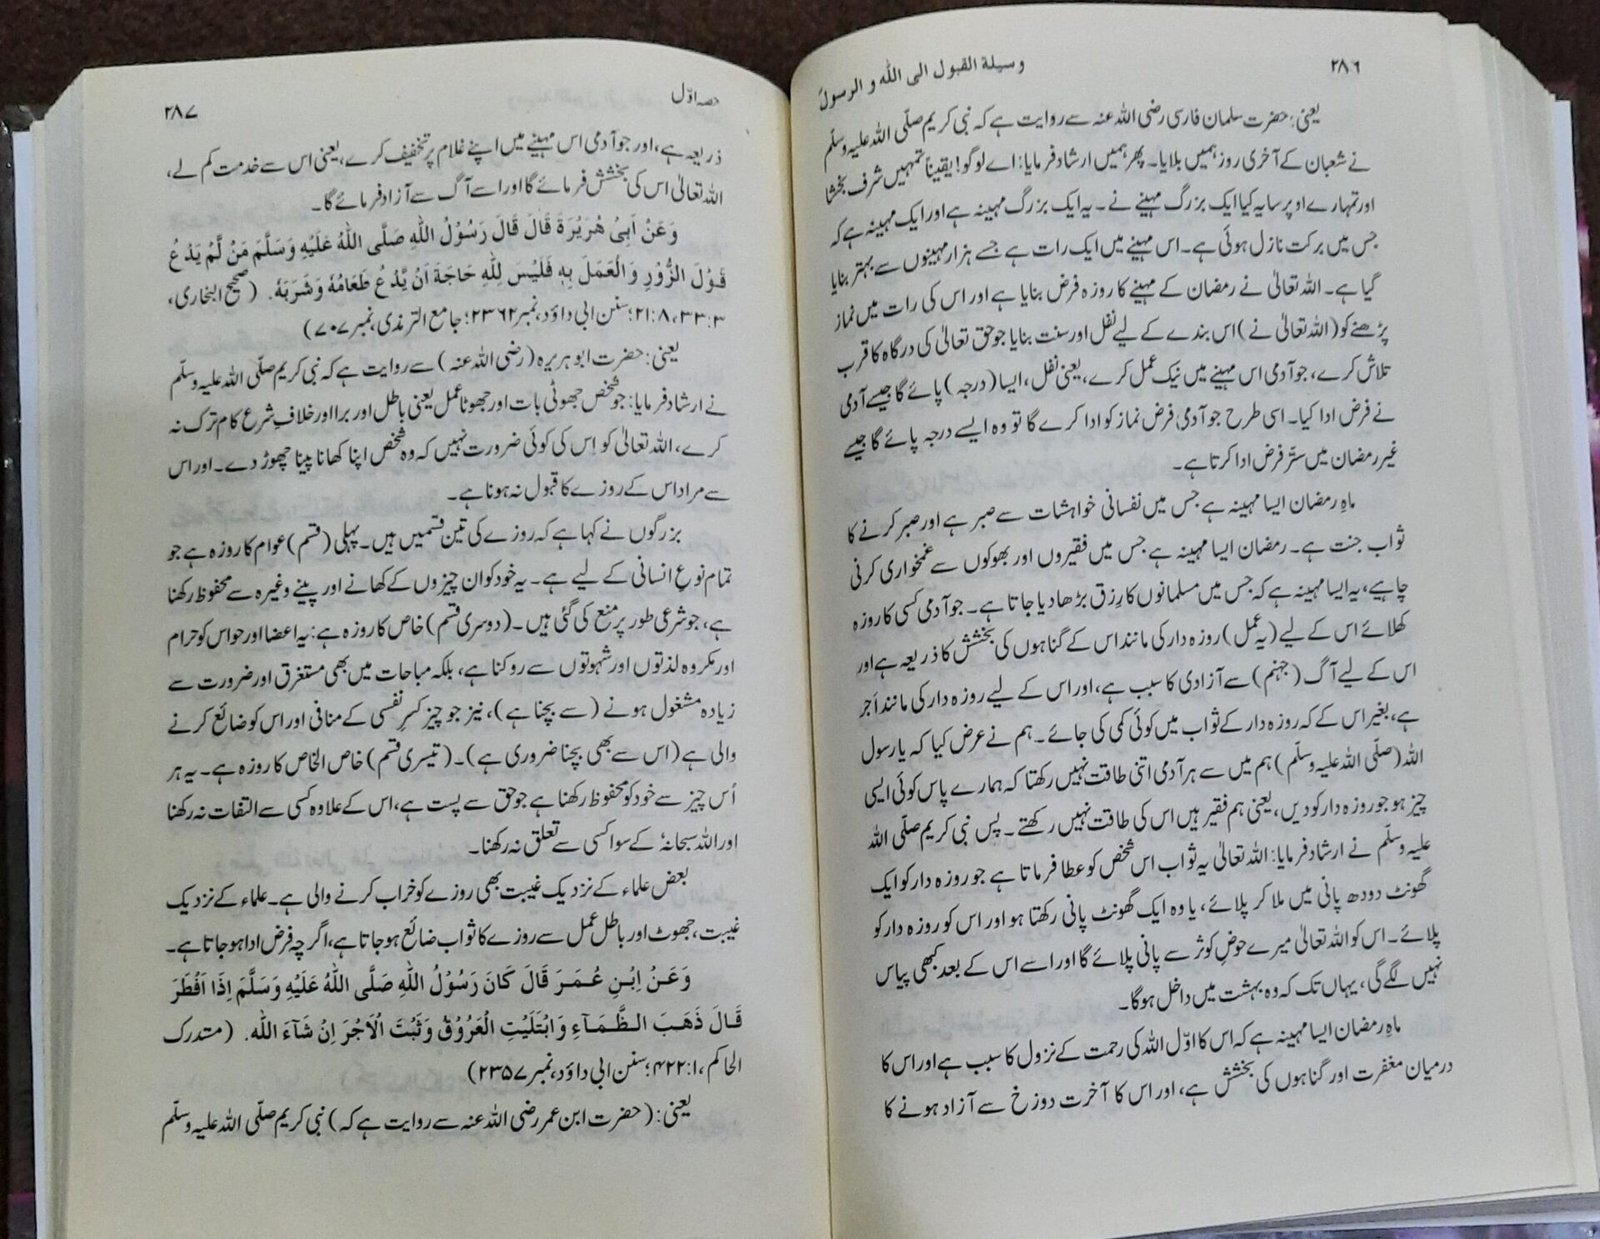 ۲۸۶
وسیلۃ القبول الی اللہ و الرسولؐ
یعنی: حضرت سلمان فارسی رضی اللہ عنہ سے روایت ہے کہ نبی کریم صلّی اللہ علیہ وسلّم
نے شعبان کے آخری روز ہمیں بلایا۔ پھر ہمیں ارشاد فرمایا: اے لوگو! یقیناً تمہیں شرف بخشا
اور تمہارے اوپر سایہ کیا ایک بزرگ مہینے نے۔ یہ ایک بزرگ مہینہ ہے اور ایک مہینہ ہے کہ
جس میں برکت نازل ہوئی ہے۔ اس مہینے میں ایک رات ہے جسے ہزار مہینوں سے بہتر بنایا
گیا ہے۔ اللہ تعالیٰ نے رمضان کے مہینے کا روزہ فرض بنایا ہے اور اس کی رات میں نماز
پڑھنے کو (اللہ تعالیٰ نے) اس بندے کے لیے نفل اور سنت بنایا جو حق تعالیٰ کی درگاہ کا قرب
تلاش کرے، جو آدمی اس مہینے میں نیک عمل کرے، یعنی نفل، ایسا (درجہ) پائے گا جیسے آدمی
نے فرض ادا کیا۔ اسی طرح جو آدمی فرض نماز کو ادا کرے گا تو وہ ایسے درجہ پائے گا جیسے
غیر رمضان میں ستّر فرض ادا کرتا ہے۔
ماہِ رمضان ایسا مہینہ ہے جس میں نفسانی خواہشات سے صبر ہے اور صبر کرنے کا
ثواب جنت ہے۔ رمضان ایسا مہینہ ہے جس میں فقیروں اور بھوکوں سے غمخواری کرنی
چاہیے، یہ ایسا مہینہ ہے کہ جس میں مسلمانوں کا رِزق بڑھا دیا جاتا ہے۔ جو آدمی کسی کا روزہ
کھلائے اس کے لیے (یہ عمل) روزہ دار کی مانند اس کے گناہوں کی بخشش کا ذریعہ ہے اور
اس کے لیے آگ (جہنم) سے آزادی کا سبب ہے، اور اس کے لیے روزہ دار کی مانند اَجر
ہے، بغیر اس کے کہ روزہ دار کے ثواب میں کوئی کمی کی جائے۔ ہم نے عرض کیا کہ یا رسول
اللہ (صلّی اللہ علیہ وسلّم) ہم میں سے ہر آدمی اتنی طاقت نہیں رکھتا کہ ہمارے پاس کوئی ایسی
چیز ہو جو روزہ دار کو دیں، یعنی ہم فقیر ہیں اس کی طاقت نہیں رکھتے۔ پس نبی کریم صلّی اللہ
علیہ وسلّم نے ارشاد فرمایا: اللہ تعالیٰ یہ ثواب اس شخص کو عطا فرماتا ہے جو روزہ دار کو ایک
گھونٹ دودھ پانی میں ملا کر پلائے، یا وہ ایک گھونٹ پانی رکھتا ہو اور اس کو روزہ دار کو
پلائے۔ اس کو اللہ تعالیٰ میرے حوضِ کوثر سے پانی پلائے گا اور اسے اس کے بعد کبھی پیاس
نہیں لگے گی، یہاں تک کہ وہ بہشت میں داخل ہوگا۔
ماہِ رمضان ایسا مہینہ ہے کہ اس کا اوّل اللہ کی رحمت کے نزول کا سبب ہے اور اس کا
درمیان مغفرت اور گناہوں کی بخشش ہے، اور اس کا آخرت دوزخ سے آزاد ہونے کا
حصہ اوّل
۲۸۷
ذریعہ ہے، اور جو آدمی اس مہینے میں اپنے غلام پر تخفیف کرے، یعنی اس سے خدمت کم لے،
اللہ تعالیٰ اس کی بخشش فرمائے گا اور اسے آگ سے آزاد فرمائے گا۔
وَعَنْ اَبِیْ هُرَیْرَةَ قَالَ قَالَ رَسُوْلُ اللّٰهِ صَلَّی اللّٰهُ عَلَیْهِ وَسَلَّمَ مَنْ لَّمْ یَدَعْ
قَوْلَ الزُّوْرِ وَالْعَمَلَ بِهٖ فَلَیْسَ لِلّٰهِ حَاجَةَ اَنْ یَّدَعْ طَعَامُهٗ وَشَرَبَهٗ. (صحیح البخاری،
۳:۳۳، ۸:۲۱؛ سنن ابی داؤد، نمبر ۲۳۶۲؛ جامع الترمذی، نمبر ۷۰۷)
یعنی: حضرت ابوہریرہ (رضی اللہ عنہ) سے روایت ہے کہ نبی کریم صلّی اللہ علیہ وسلّم
نے ارشاد فرمایا: جو شخص جھوٹی بات اور جھوٹا عمل یعنی باطل اور برا اور خلافِ شرع کام ترک نہ
کرے، اللہ تعالیٰ کو اِس کی کوئی ضرورت نہیں کہ وہ شخص اپنا کھانا پینا چھوڑ دے۔ اور اس
سے مراد اس کے روزے کا قبول نہ ہونا ہے۔
بزرگوں نے کہا ہے کہ روزے کی تین قسمیں ہیں۔ پہلی (قسم) عوام کا روزہ ہے جو
تمام نوعِ انسانی کے لیے ہے۔ یہ خود کو ان چیزوں کے کھانے اور پینے وغیرہ سے محفوظ رکھنا
ہے، جو شرعی طور پر منع کی گئی ہیں۔ (دوسری قسم) خاص کا روزہ ہے: یہ اعضا اور حواس کو حرام
اور مکروہ لذتوں اور شہوتوں سے روکنا ہے، بلکہ مباحات میں بھی مستغرق اور ضرورت سے
زیادہ مشغول ہونے (سے بچنا ہے)، نیز جو چیز کسرِ نفسی کے منافی اور اس کو ضائع کرنے
والی ہے (اس سے بھی بچنا ضروری ہے)۔ (تیسری قسم) خاص الخاص کا روزہ ہے۔ یہ ہر
اُس چیز سے خود کو محفوظ رکھنا ہے جو حق سے پست ہے، اس کے علاوہ کسی سے التفات نہ رکھنا
اور اللہ سبحانہٗ کے سوا کسی سے تعلق نہ رکھنا۔
بعض علماء کے نزدیک غیبت بھی روزے کو خراب کرنے والی ہے۔ علماء کے نزدیک
غیبت، جھوٹ اور باطل عمل سے روزے کا ثواب ضائع ہو جاتا ہے، اگرچہ فرض ادا ہو جاتا ہے۔
وَعَنْ اِبْنِ عُمَرَ قَالَ کَانَ رَسُوْلُ اللّٰهِ صَلَّی اللّٰهُ عَلَیْهِ وَسَلَّمَ اِذَا اَفْطَرَ
قَالَ ذَهَبَ الظَّمَآءِ وَابْتَلَیْتِ الْعَرُوْقُ وَثَبْتَ الْاَجْرَ اِنْ شَآءَ اللّٰه. (مستدرک
الحاکم، ۱:۴۲۲؛ سنن ابی داؤد، نمبر ۲۳۵۷)
یعنی: (حضرت ابن عمر رضی اللہ عنہ سے روایت ہے کہ) نبی کریم صلّی اللہ علیہ وسلّم